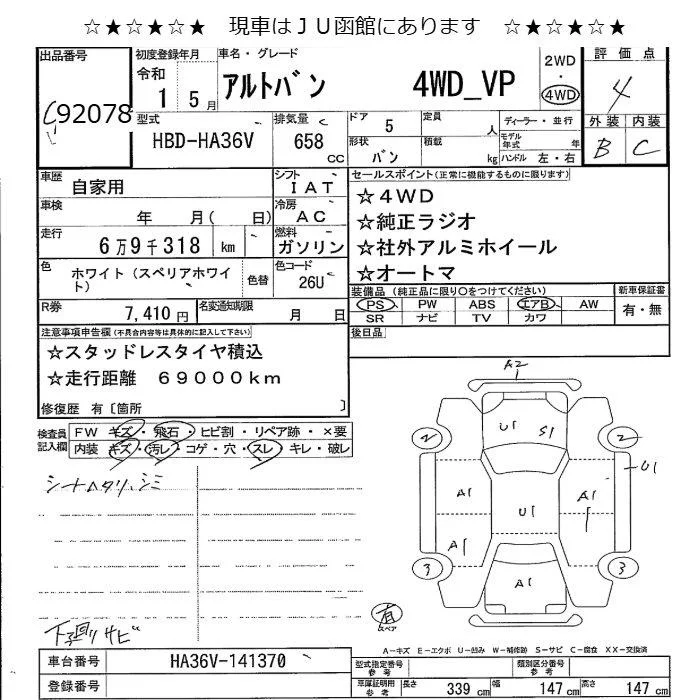 ☆★☆★☆★ 現車はＪＵ函館にあります ☆★☆★☆★
出品番号
92078
初度登録年月
令和
1 5月
車名・グレード
アルトバン 4WD_VP
2WD
・
4WD
評価点
4
外装 内装
B C
型式
HBD-HA36V
排気量 c
658
CC
ドア 5
形状 バン
定員 人
積載 kg
ディーラー・並行
モデル年式 年
ハンドル 左・右
車歴
自家用
シフト
IAT
車検
年 月( 日)
冷房
AC
走行
6万9千318 km
燃料
ガソリン
色
ホワイト(スペリアホワイト)
色替
色コード
26U
R券
7,410円
名変通知期限
月 日
セールスポイント(正常に機能するものに限ります)
☆4WD
☆純正ラジオ
☆社外アルミホイール
☆オートマ
装備品(純正品に限り○をつけてください)
PS PW ABS エアB AW
SR ナビ TV カワ
新車保証書
有・無
注意事項申告欄(不具合内容等は具体的に記入して下さい)
☆スタッドレスタイヤ積込
☆走行距離 69000km
修復歴 有〔箇所 〕
後日品
検査員
記入欄
FW キズ・飛石・ヒビ割・リペア跡・×要
内装 キズ・汚レ・コゲ・穴・スレ・キレ・破レ
シートヘタリ、シミ
下廻りサビ
A2
U1 S1
2 2
U1
A1 A1
U1
A1
3 3
A1
有
スペア
A－キズ E－エクボ U－凹み W－補修跡 S－サビ C－腐食 XX－交換済
車台番号
HA36V-141370
登録番号
型式指定番号
参考
類別区分番号
参考
車庫証明用
参考
長さ 339 cm 幅 147 cm 高さ 147 cm